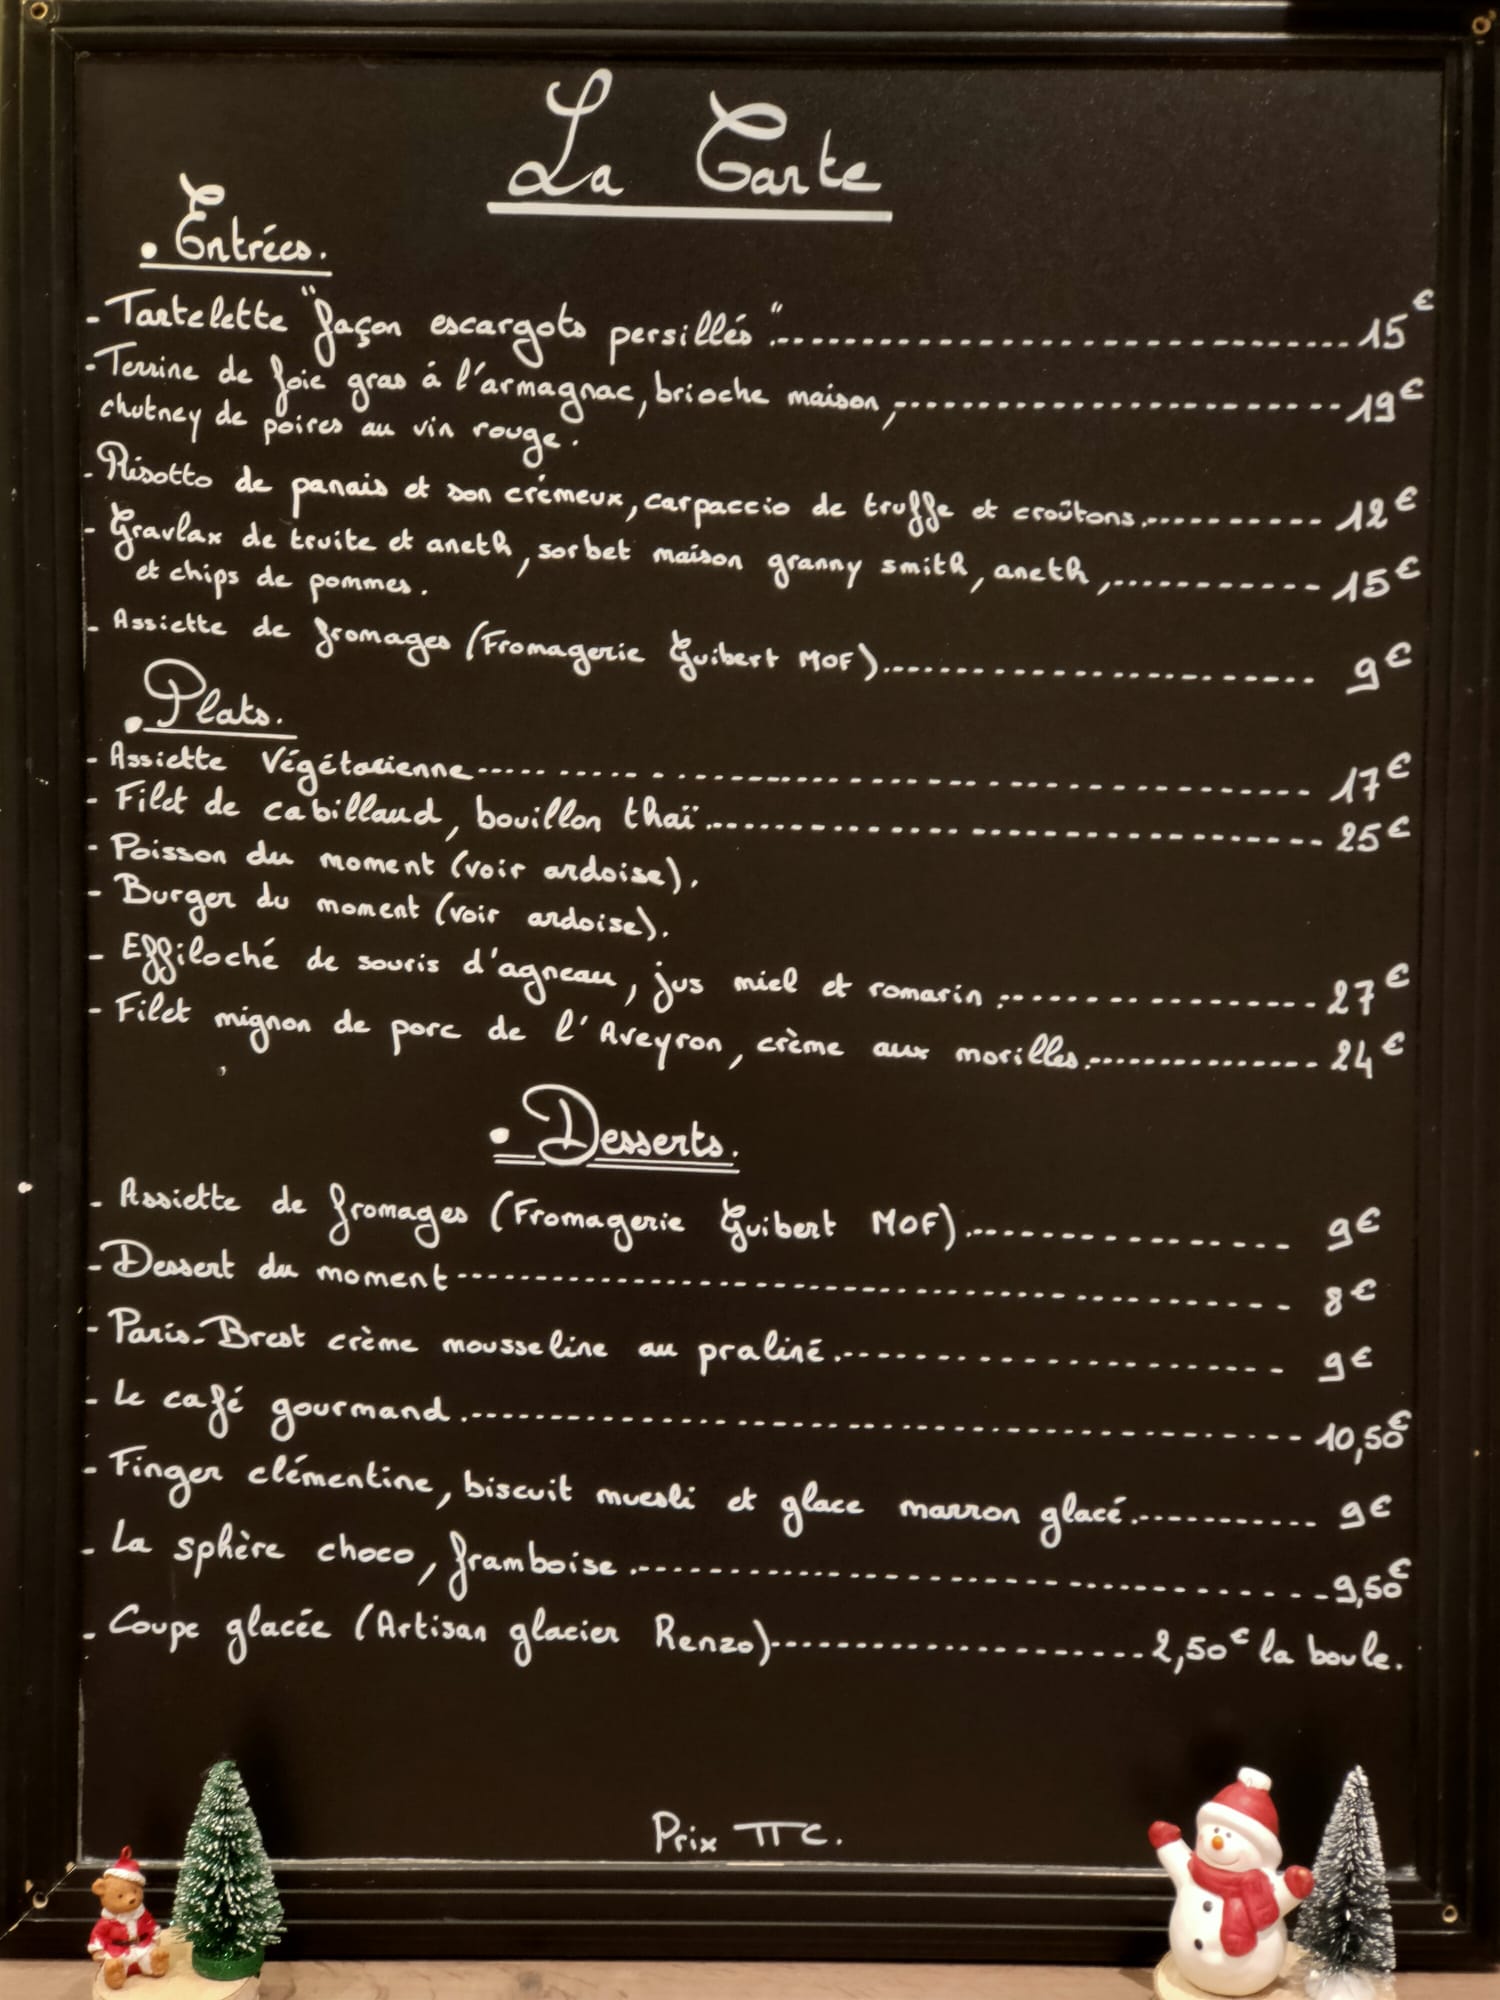 La Carte
• Entrées.
- Tartelette "façon escargots persillés"............ 15€
- Terrine de foie gras à l'armagnac, brioche maison,............ 19€
chutney de poires au vin rouge.
- Risotto de panais et son crémeux, carpaccio de truffe et croûtons............ 12€
- Gravlax de truite et aneth, sorbet maison granny smith, aneth,............ 15€
et chips de pommes.
- Assiette de fromages (Fromagerie Guibert MOF)............ 9€
• Plats.
- Assiette Végétarienne............ 17€
- Filet de cabillaud, bouillon thaï............ 25€
- Poisson du moment (voir ardoise).
- Burger du moment (voir ardoise).
- Effiloché de souris d'agneau, jus miel et romarin............ 27€
- Filet mignon de porc de l'Aveyron, crème aux morilles............ 24€
• Desserts.
- Assiette de fromages (Fromagerie Guibert MOF)............ 9€
- Dessert du moment............ 8€
- Paris-Brest crème mousseline au praliné............ 9€
- Le café gourmand............ 10,50€
- Finger clémentine, biscuit muesli et glace marron glacé............ 9€
- La sphère choco, framboise............ 9,50€
- Coupe glacée (Artisan glacier Renzo)............ 2,50€ la boule.
Prix TTC.